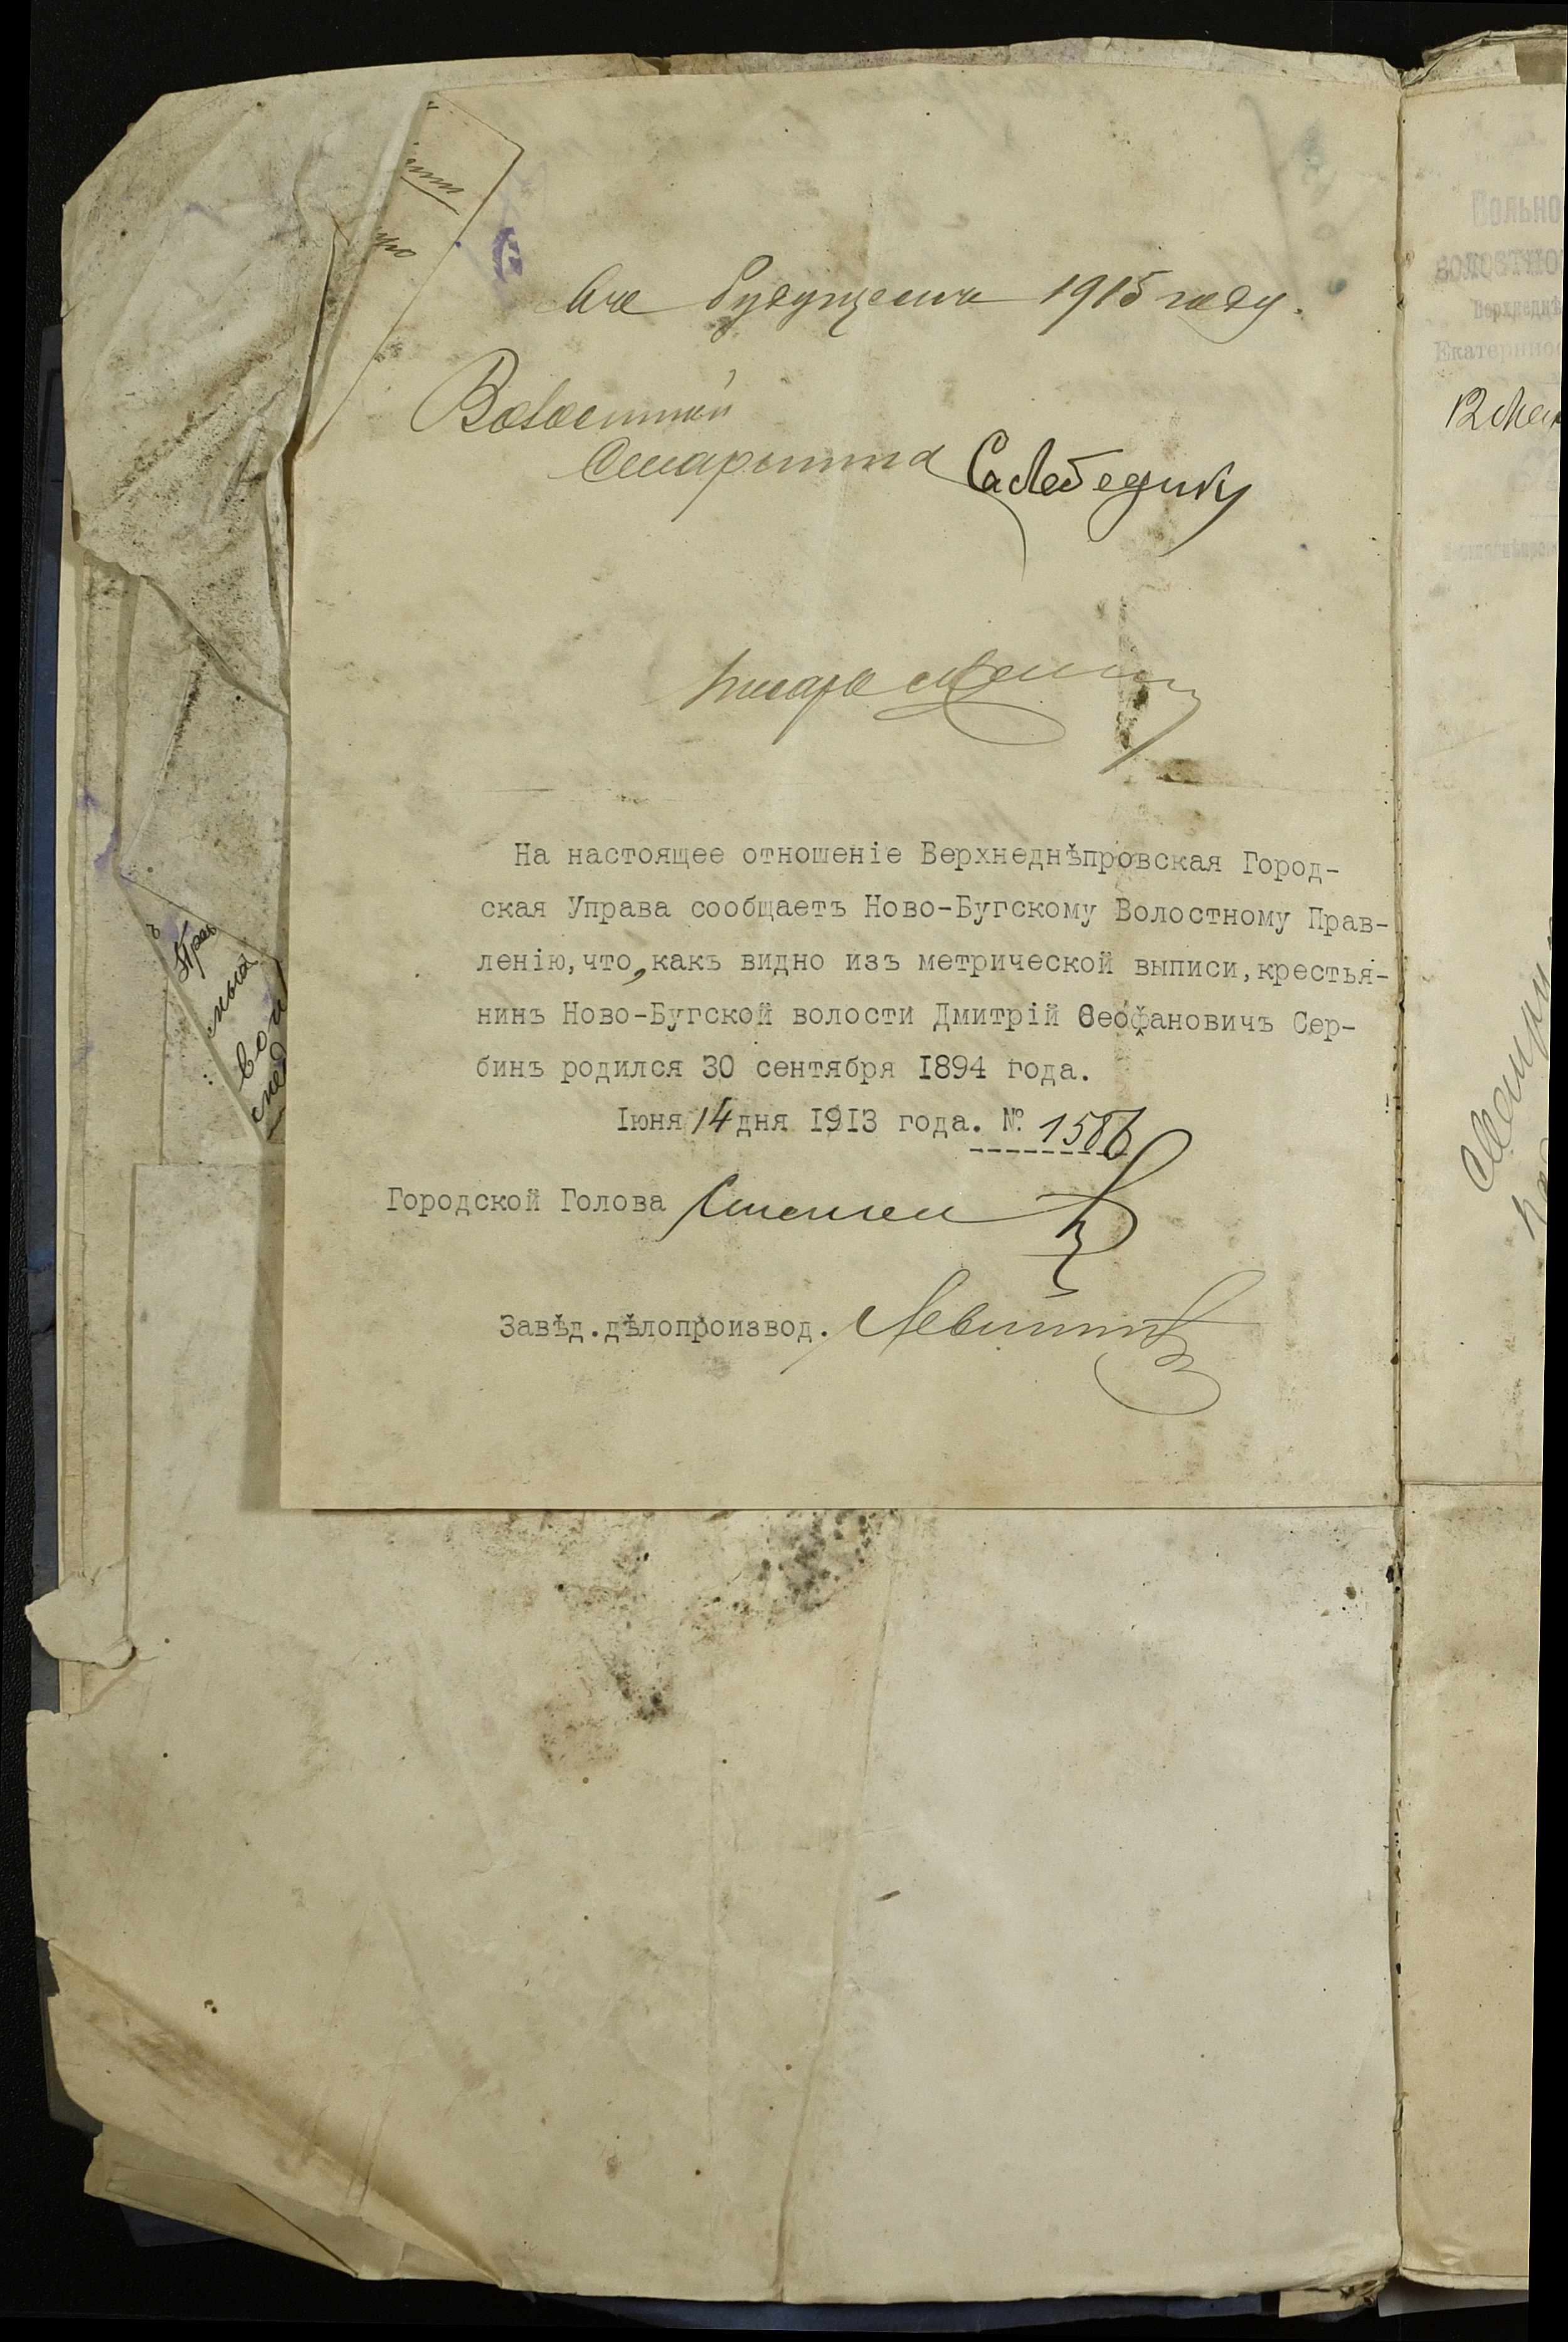 въ будущемъ 1915 году.
Волостной
Старшина
Писарь
На настоящее отношеніе Верхнеднѣпровская Город-
ская Управа сообщаетъ Ново-Бугскому Волостному Прав-
ленію, что, какъ видно изъ метрической выписи, крестья-
нинъ Ново-Бугской волости Дмитрій Ѳеофановичъ Сер-
бинъ родился 30 сентября 1894 года.
Іюня 14 дня 1913 года. № 1586
Городской Голова
Завѣд. дѣлопроизвод.
Вольно
волостно
Верхнеднѣ
Екатеринос
12